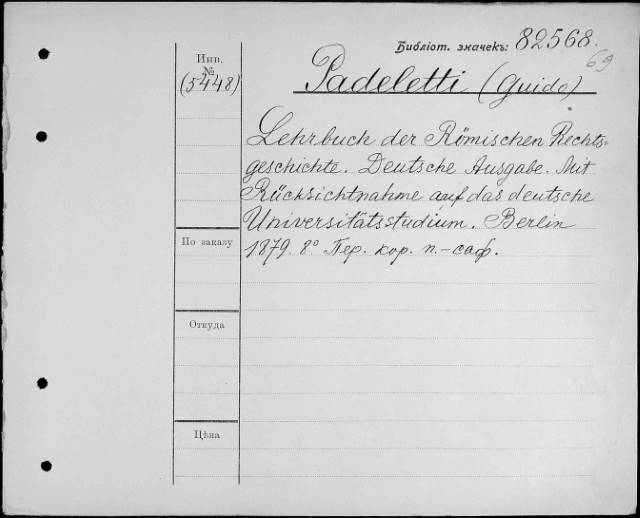 Библіот. значекъ: 82568.
69
Инв.
№
(5448)
Padeletti (Guido)
Lehrbuch der Römischen Rechts-
geschichte. Deutsche Ausgabe. Mit
Rücksichtnahme auf das deutsche
Universitätsstudium. Berlin
1879. 8° Пер. кор. п.-саф.
По заказу
Откуда
Цѣна